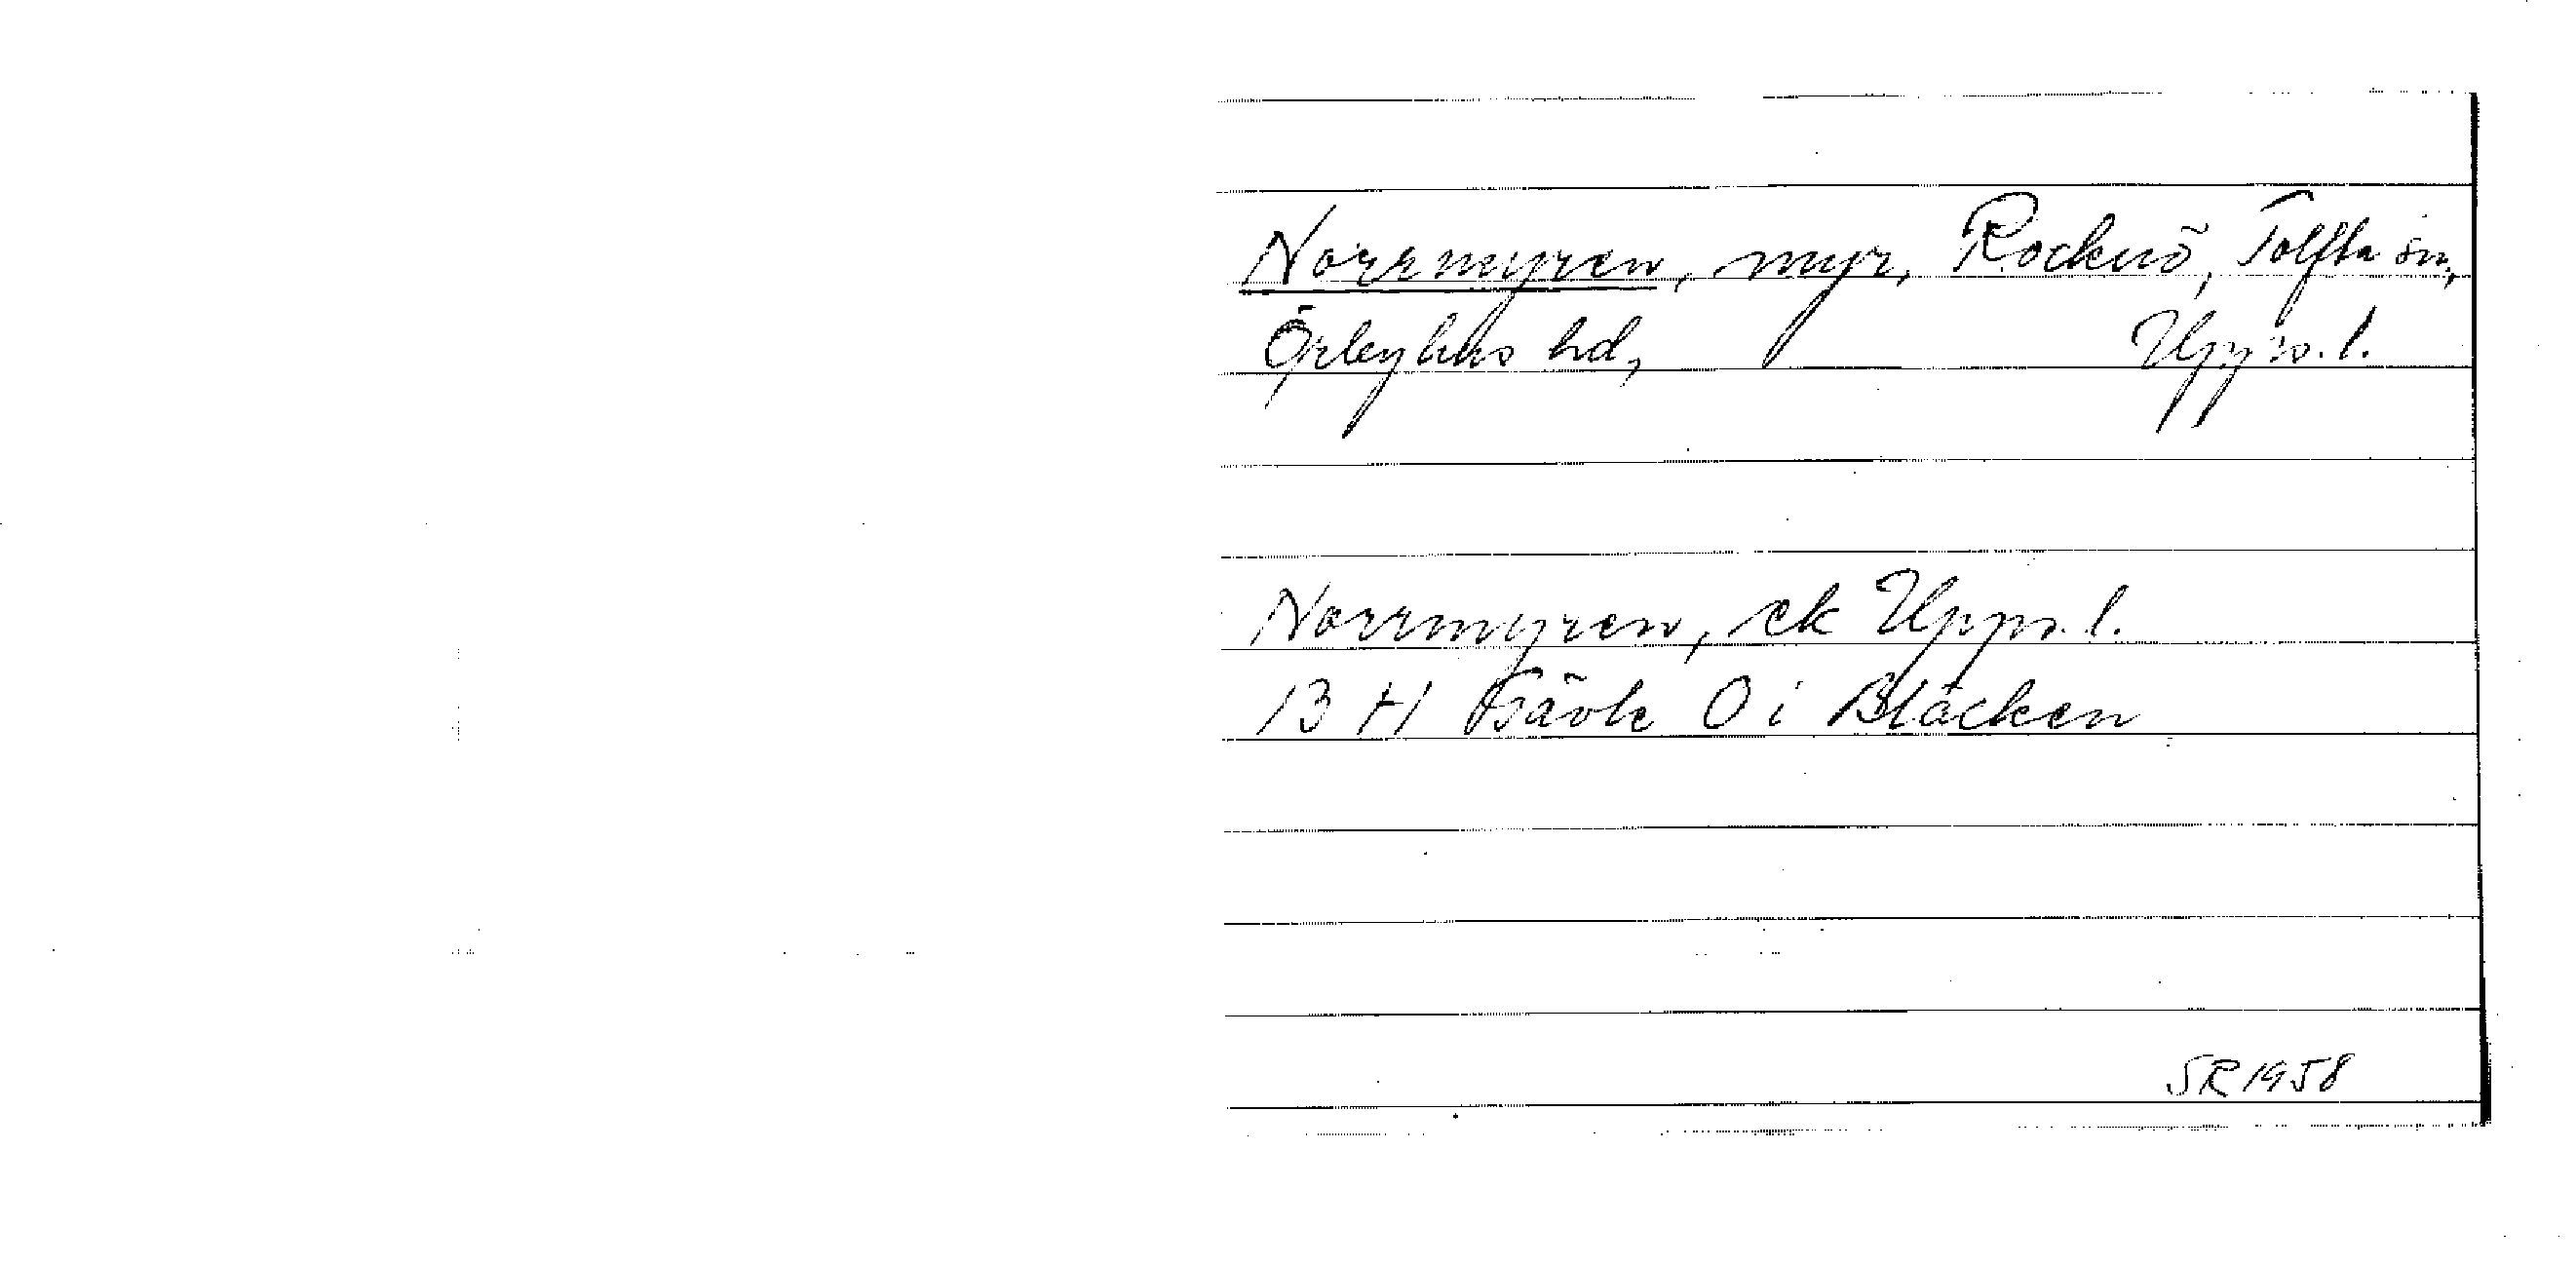 Norrmyren, myr, Rocknö, Tolfta sn,
Örbyhus hd, Upps. l.
Norrmyren, ek Upps. l.
13 H Gävle O i Bläcken
SR 1958